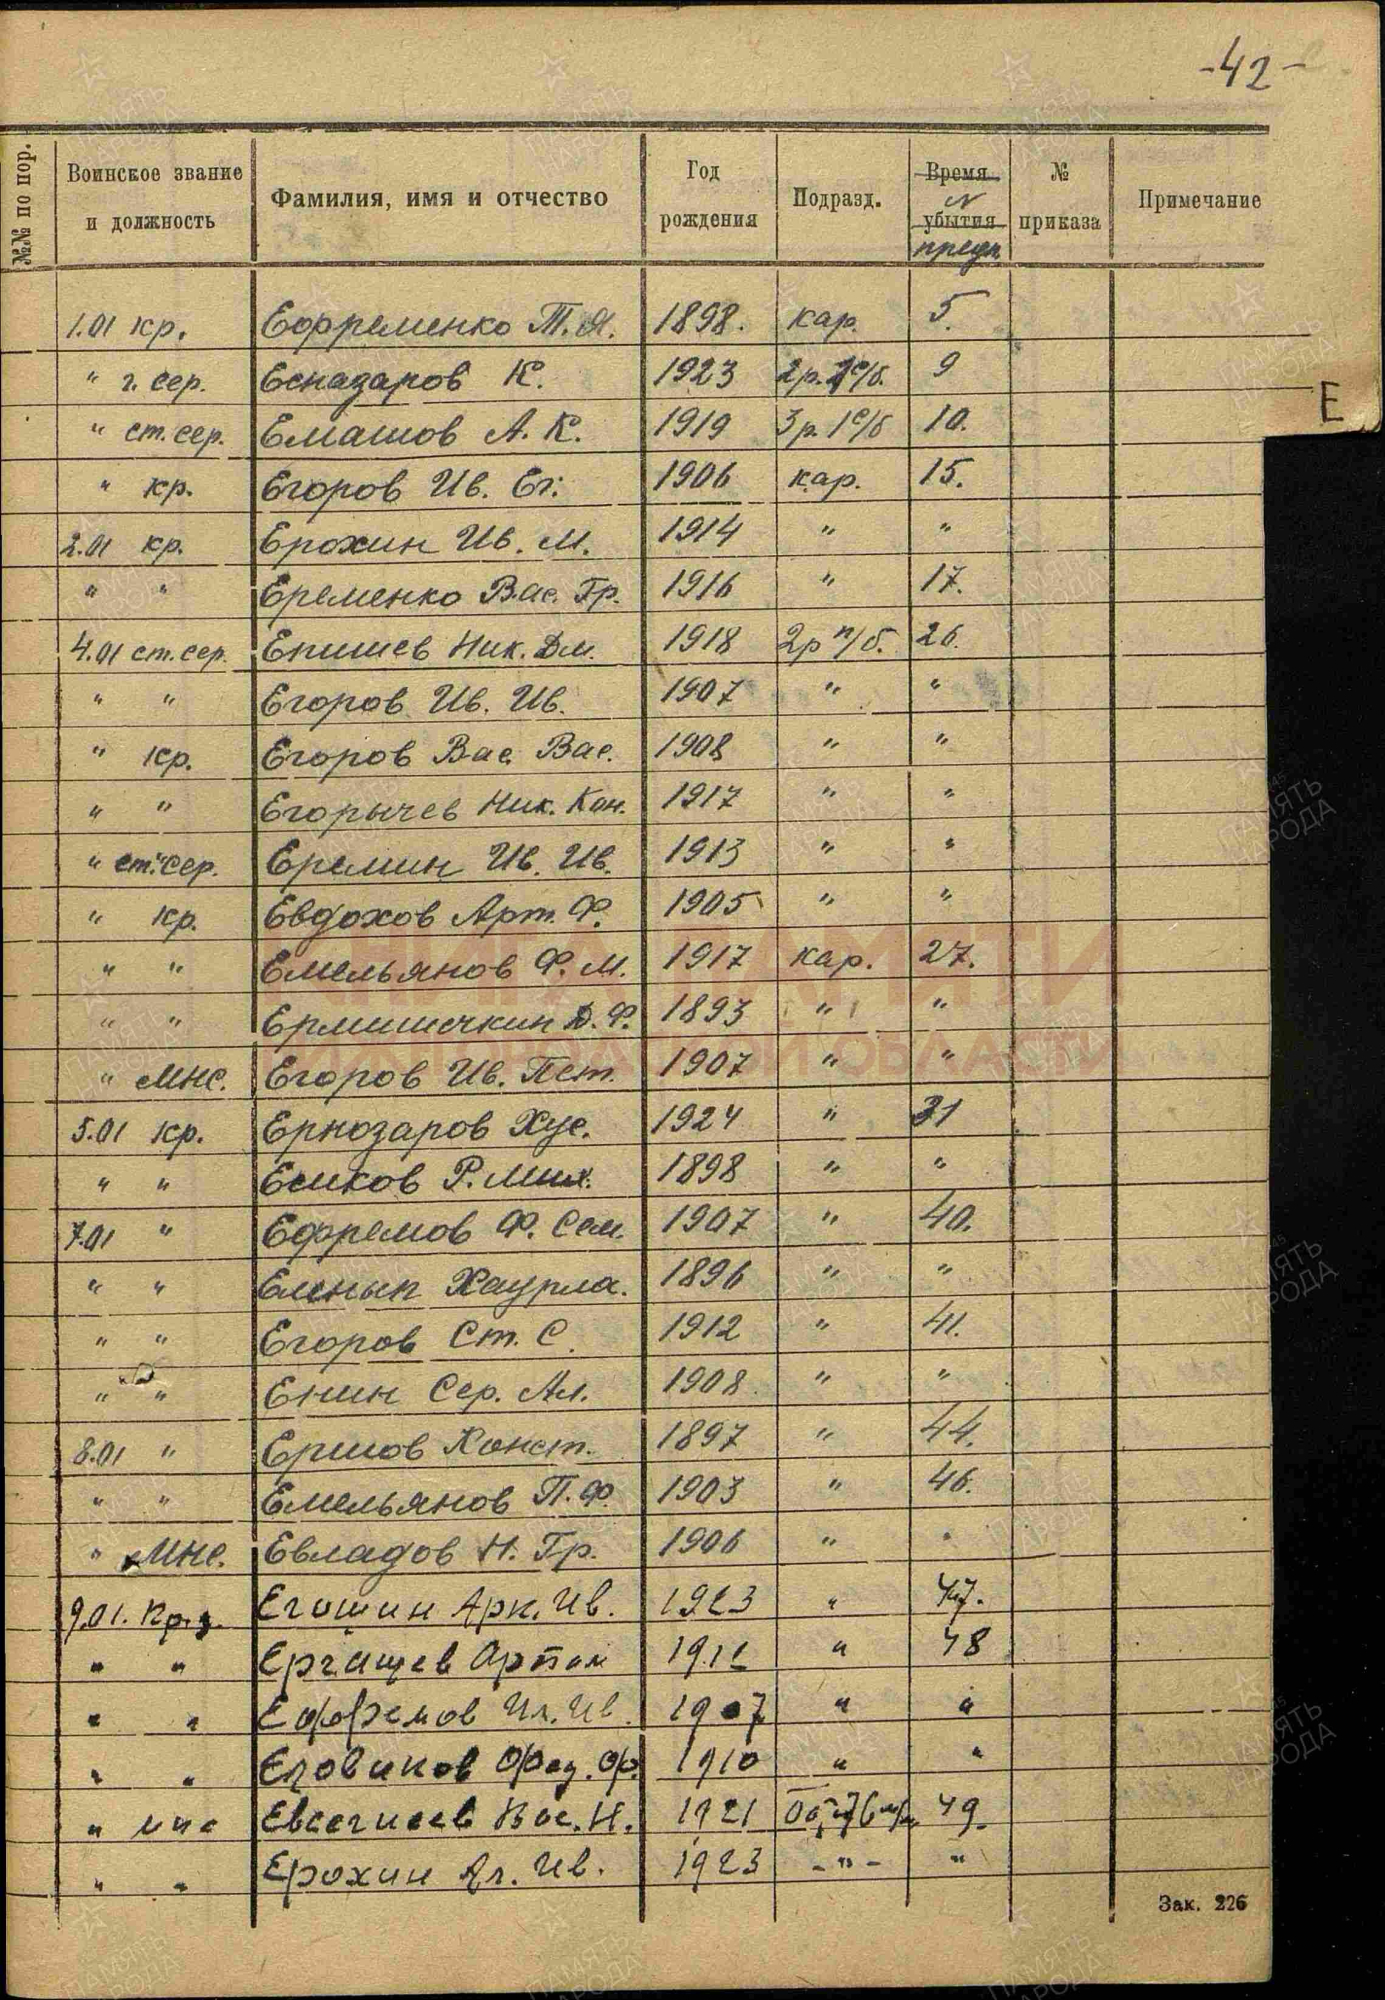 -42-
№№ по пор.
Воинское звание и должность
Фамилия, имя и отчество
Год рождения
Подразд.
Время убытия
№
предп.
№ приказа
Примечание
Е
1.01 кр. Ефременко Т.Я. 1898. кар. 5.
" г. сер. Есназаров К. 1923 2р. с/б. 9
" ст. сер. Емашов А. К. 1919 3р. 1с/б 10.
" кр. Егоров Ив. Ег. 1906 кар. 15.
2.01 кр. Ерохин Ив. М. 1914 " "
" " Еременко Вас. Гр. 1916 " 17.
4.01 ст. сер. Епишев Ник. Дм. 1918 2р п/б. 26.
" " Егоров Ив. Ив. 1907 " "
" кр. Егоров Вас. Вас. 1908 " "
" " Егорычев Ник. Кон. 1917 " "
" ст. сер. Еремин Ив. Ив. 1913 " "
" кр. Евдохов Арт. Ф. 1905 " "
" " Емельянов Ф. М. 1917 кар. 27.
" " Ермишечкин Д. Ф. 1893 " "
" мнс. Егоров Ив. Пет. 1907 " "
5.01 кр. Ерназаров Хус. 1924 " 31
" " Есиков Р. Мих. 1898 " "
7.01 " Ефремов Ф. Сем. 1907 " 40.
" " Хаурла. 1896 " "
" " Егоров Ст. С. 1912 " 41.
" " Енин Сер. Ал. 1908 " "
8.01 " Ершов Конст. 1897 " 44.
" " Емельянов П. Ф. 1903 " 46.
" мнс. Евладов Н. Гр. 1906 " "
9.01. Кр-ц. Егошин Арк. Ив. 1923 " 47.
" " Ергашев Артам " 48
" " Ефремов Ил. Ив. 1907 " "
" " Еловиков Фед. Ф. 1910 " "
" мнс Евсегнеев Вас. Н. 1921 49.
" " Ерохин Ал. Ив. 1923 - " - "
Зак. 226
КНИГА ПАМЯТИ
НИЖЕГОРОДСКОЙ ОБЛАСТИ
ПАМЯТЬ НАРОДА